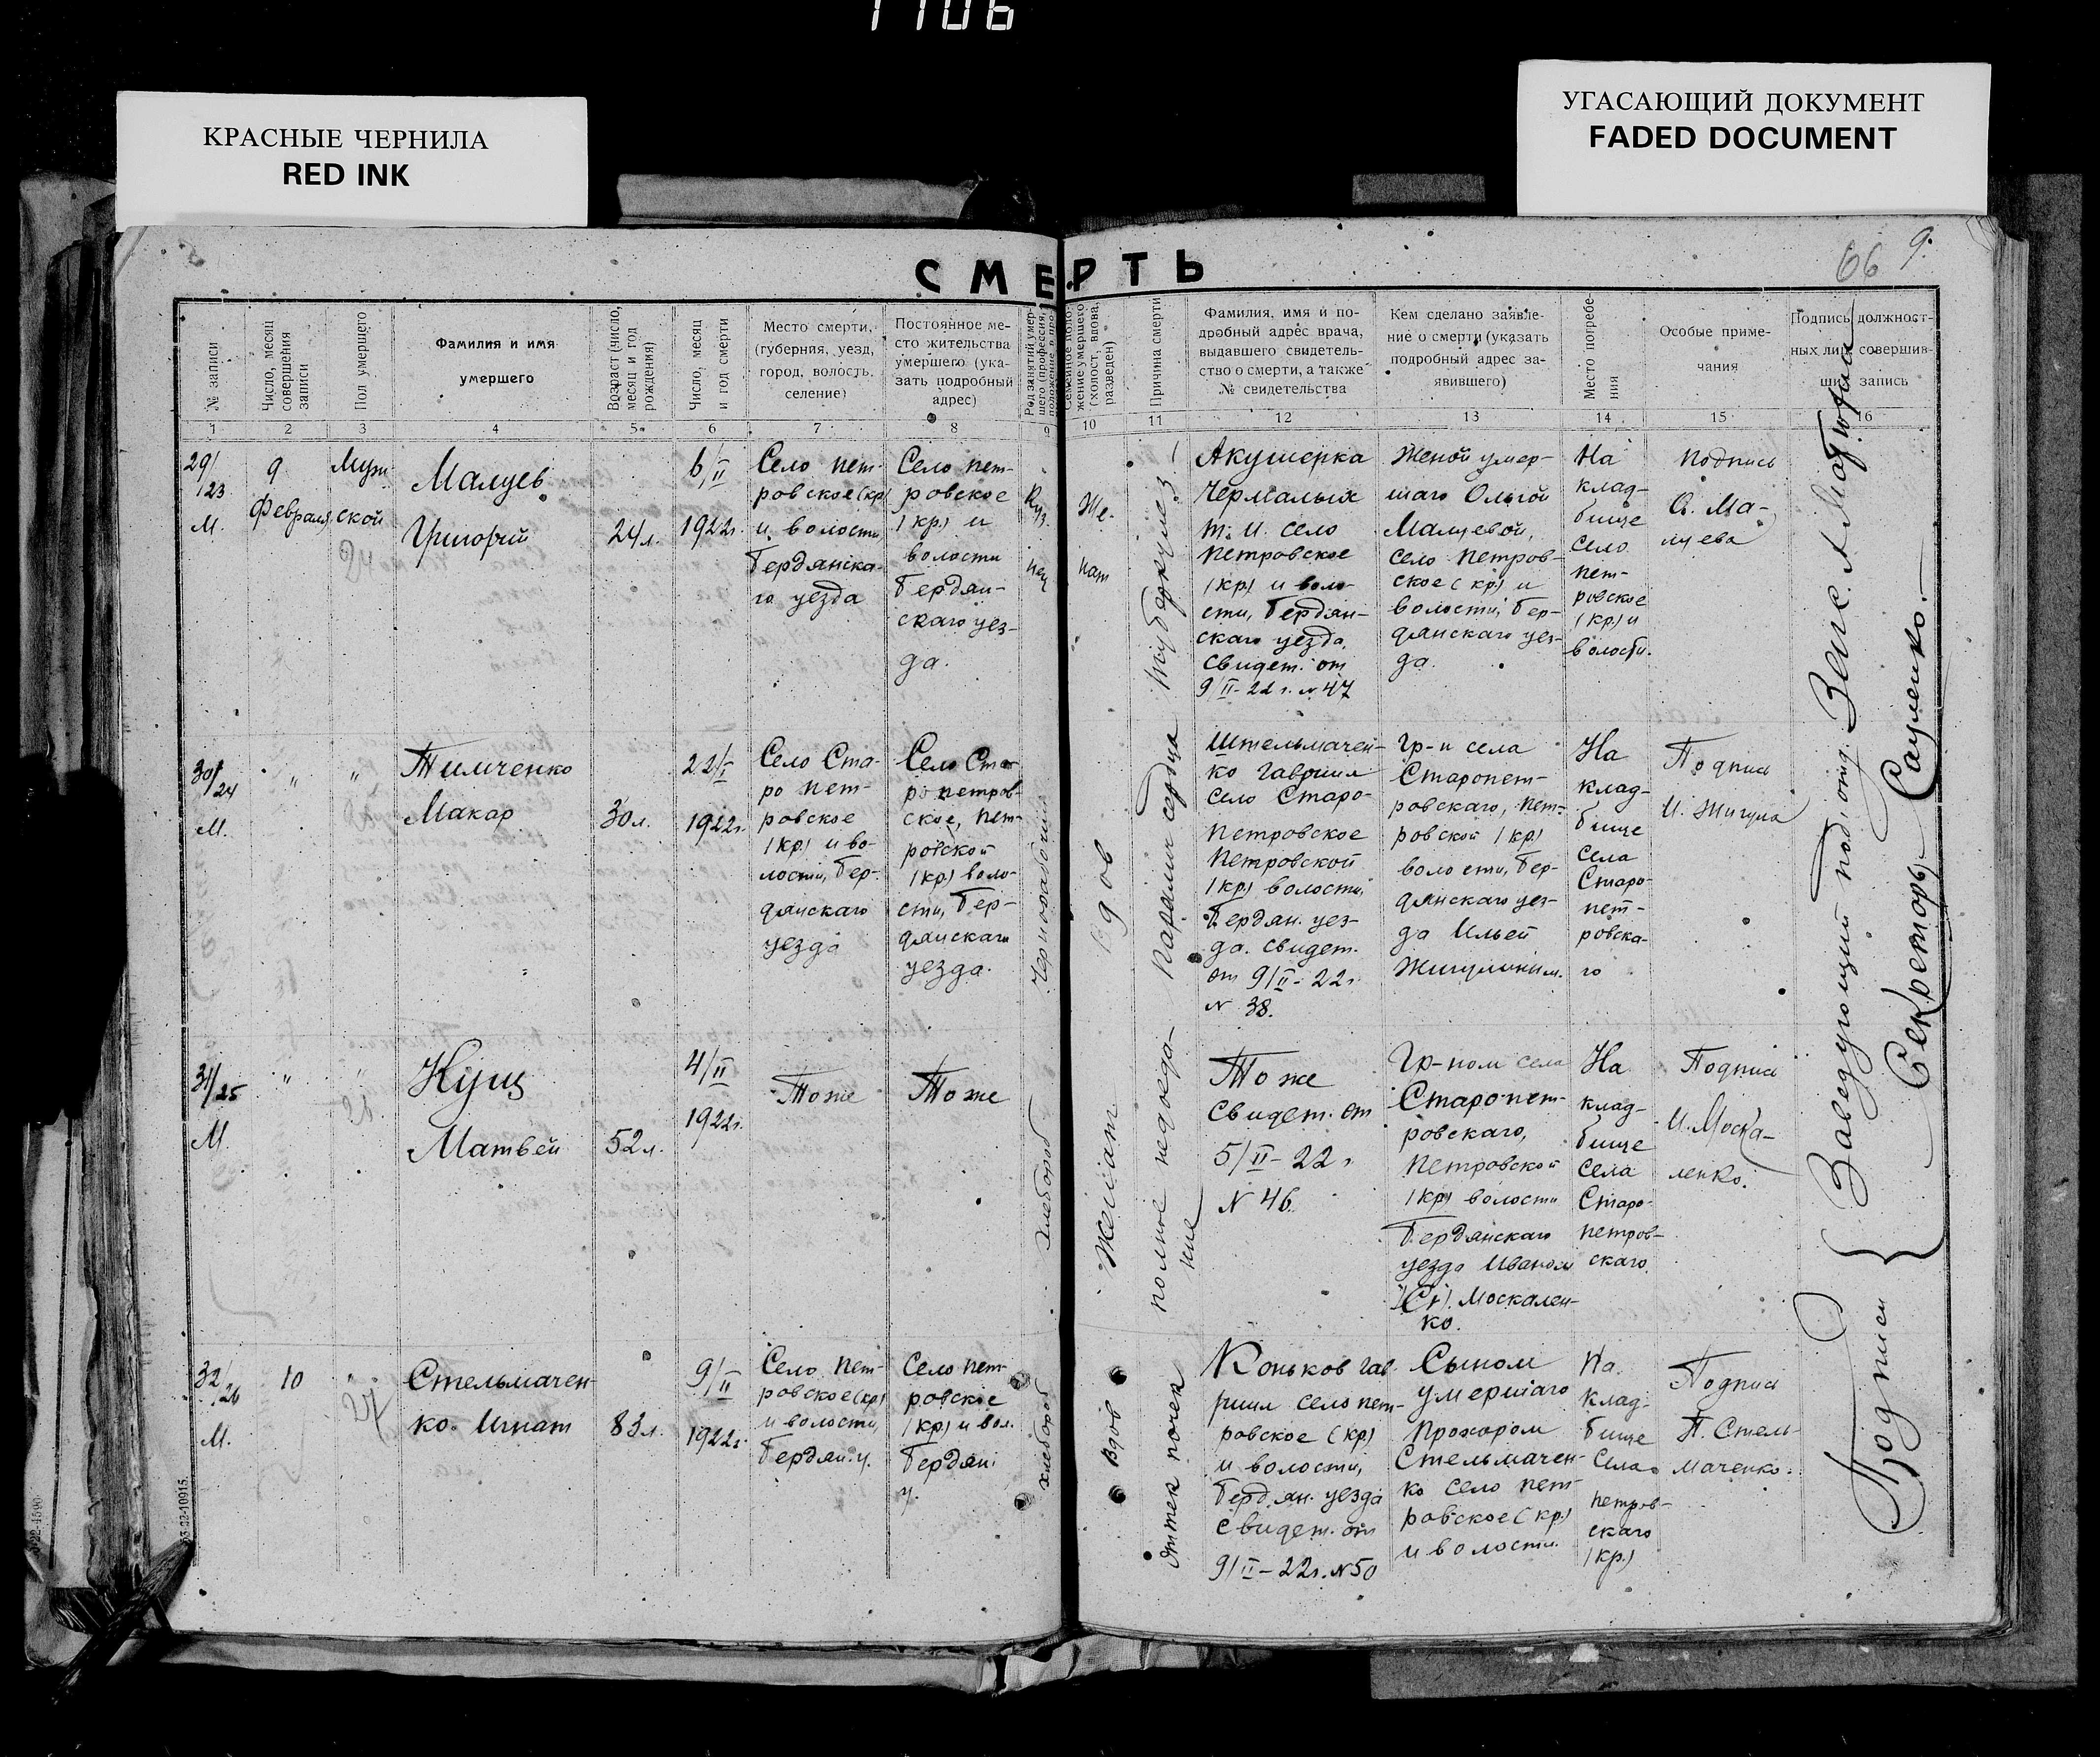 1106
КРАСНЫЕ ЧЕРНИЛА
RED INK
УГАСАЮЩИЙ ДОКУМЕНТ
FADED DOCUMENT
66 9.
СМЕРТЬ
№ записи
Число, месяц
совершения
записи
Пол умершего
Фамилия и имя
умершего
Возраст (число,
месяц и год
рождения)
Число, месяц
и год смерти
Место смерти,
(губерния, уезд,
город, волость,
селение)
Постоянное ме-
сто жительства
умершего (ука-
зать подробный
адрес)
Род занятий умер-
шего (профессия,
Семейное поло-
жение умершего
(холост, вдова,
разведен)
Причина смерти
Фамилия, имя и по-
дробный адрес врача,
выдавшего свидетель-
ство о смерти, а также
№ свидетельства
Кем сделано заявле-
ние о смерти (указать
подробный адрес за-
явившего)
Место погребе-
ния
Особые приме-
чания
Подпись должност-
ных лиц, совершив-
ших запись
1 2 3 4 5 6 7 8 9 10 11 12 13 14 15 16
29/
123
М.
9
Февраля
Муж
ской
24
Малуев
Григорий
24 л.
6/II
1922г.
Село Пет-
ровское (кр)
и волости
Бердянска-
го уезда
Село Пет-
ровское
(кр.) и
волости
Бердян-
скаго уез-
да.
Куз
нец
Же-
нат
туберкулез
Акушерка
Чермалых
Т. И. село
Петровское
(кр) и воло-
сти, Бердян-
скаго уезда.
Свидет. от
9/II-22 г. № 47
Женой умер-
шаго Ольгой
Малуевой,
село Петров-
ское (кр) и
волости, Бер-
дянскаго уез-
да.
На
клад-
бище
село
Пет-
ровское
(кр.) и
волости.
Подпись
О. Ма-
луева
30/
24
М.
"
"
Тимченко
Макар
30 л.
22/I
1922г.
Село Ста-
ро Пет-
ровское
(кр) и во-
лости, Бер-
дянскаго
уезда
Село Ста-
ро Петров-
ское, Пет-
ровской
(кр) воло-
сти, Бер-
дянскаго
уезда.
Чернорабочий
Вдов
Паралич сердца
Штельмачен-
ко Гавриил
село Старо-
Петровское
Петровской
(кр) волости,
Бердян. уез-
да. Свидет.
от 9/II-22 г
№ 38.
Гр-н села
Старопет-
ровскаго, Пет-
ровской (кр)
волости, Бер-
дянскаго уез-
да Ильей
Жигулиным.
На
клад-
бище
села
Старо-
пет-
ровска-
го
Подпись
И. Жигула
31/
25
М.
"
"
Куц
Матвей
52 л.
4/II
1922г.
Тоже
Тоже
Хлебороб
Женат
полное недоеда-
ние
То же
Свидет. от
5/II-22 г
№ 46.
Гр-ном села
Старопет-
ровскаго,
Петровской
(кр) волости
Бердянскаго
уезда Иваном
Москален-
ко.
На
клад-
бище
села
Старо-
петров-
скаго.
Подпись
И. Моска-
ленко.
32/
26
М.
10
"
27
Стельмачен-
ко Игнат
83 л.
9/II
1922г.
Село Пет-
ровское (кр)
и волости,
Бердян. у.
Село Пет-
ровское
(кр.) и вол.
Бердян.
у.
хлебороб
Вдов
Оттек почек
Коньков Гав-
риил село Пет-
ровское (кр)
и волости,
Бердян. уезда
Свидет. от
9/II-22 г. № 50
Сыном
умершаго
Прохором
Стельмачен-
ко село Пет-
ровское (кр.)
и волости.
На
клад-
бище
села
Петров-
скаго
(кр.)
Подпись
П. Стель-
маченко.
Подписи { Заведующий под. отд. Загс. А Матюша
Секретарь Сауленко.